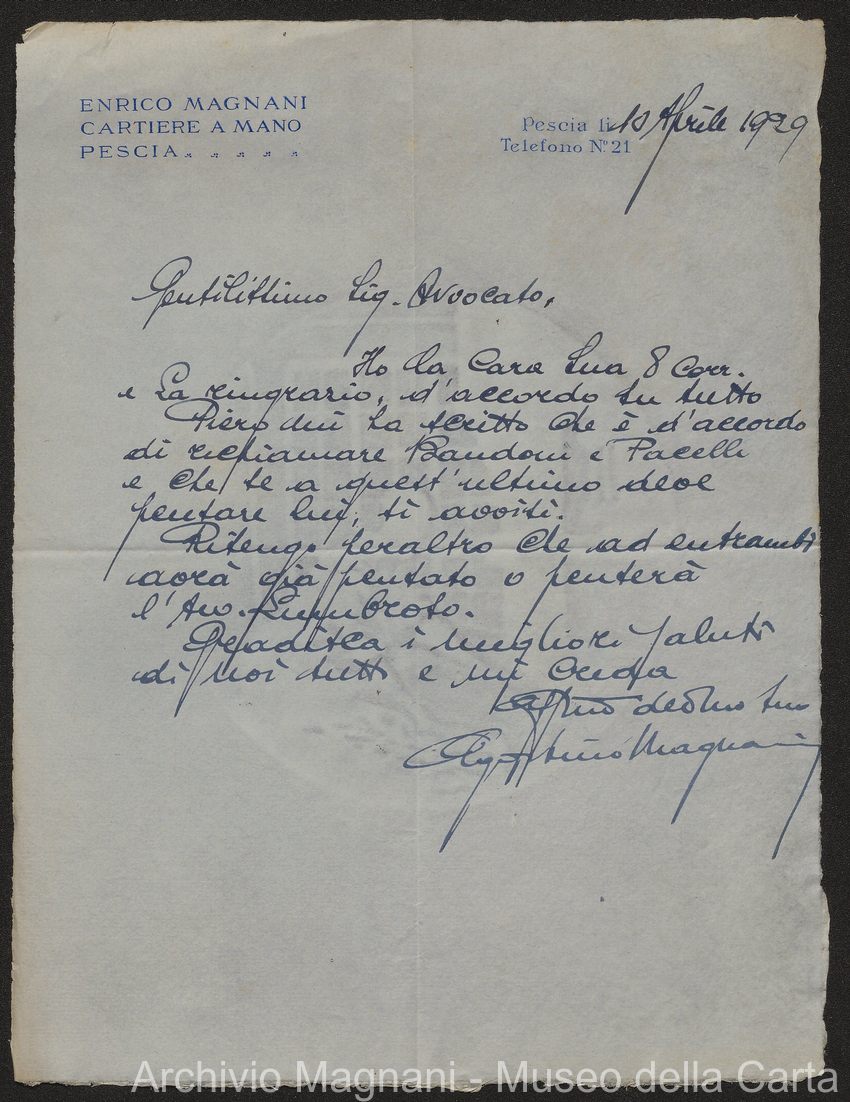 ENRICO MAGNANI
CARTIERE A MANO
PESCIA
Pescia li 10 Aprile 1929
Telefono N.º 21
Gentilissimo Sig. Avvocato,
Ho la Cara Sua 8 Corr.
e La ringrazio, d'accordo su tutto
Piero mi ha scritto che è d'accordo
di richiamare Bandoni e Pacelli
e che se a quest'ultimo deve
pensare lui, si avvisi.
Ritengo peraltro che ad entrambi
avrà già pensato o penserà
l'Avv. Lumbroso.
Gradisca i migliori saluti
di noi tutti e mi creda
Aff.mo dev.mo Suo
Agostino Magnani
Archivio Magnani - Museo della Carta